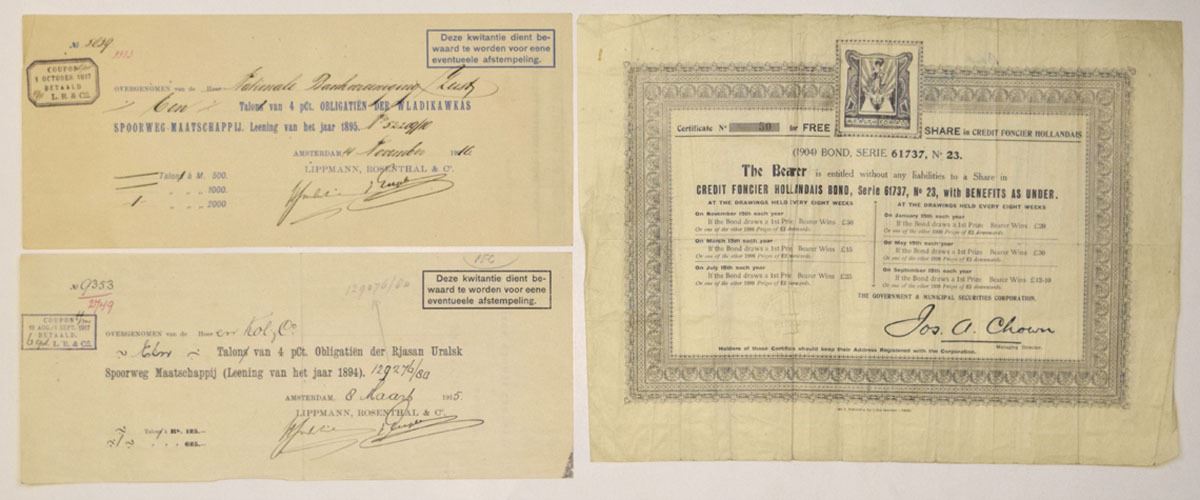 № 5639
Deze kwitantie dient be-
waard te worden voor eene
eventueele afstempeling.
COUPON
1 OCTOBER 1917
BETAALD
L. R. & Co.
OVERGENOMEN van de Heer Nationale Bankvereeniging Zeist
Een Talons van 4 pCt. OBLIGATIËN DER WLADIKAWKAS
SPOORWEG-MAATSCHAPPIJ. Leening van het jaar 1895.
AMSTERDAM, 4 November 1916.
LIPPMANN, ROSENTHAL & Co.
Talons à M. 500.
„ „ 1000.
1 „ „ 2000
152
№ 9353
2749
129276/80
Deze kwitantie dient be-
waard te worden voor eene
eventueele afstempeling.
COUPON
BETAALD
L. R. & Co.
OVERGENOMEN van de Heeren Kol & Co
Talons van 4 pCt. Obligatiën der Rjasan Uralsk
Spoorweg Maatschappij (Leening van het jaar 1894). 129276/80
AMSTERDAM, 8 Maart 1915.
LIPPMANN, ROSENTHAL & Co.
Talons à Rs. 125.—
1 „ „ „ 625.—
Certificate No 50 for FREE SHARE in CREDIT FONCIER HOLLANDAIS
(1904) BOND, SERIE 61737, No 23.
The Bearer is entitled without any liabilities to a Share in
CREDIT FONCIER HOLLANDAIS BOND, Serie 61737, No 23, with BENEFITS AS UNDER.
AT THE DRAWINGS HELD EVERY EIGHT WEEKS
On November 15th each year
If the Bond draws a 1st Prize Bearer Wins £50
On one of the other 1998 Prizes of £2 downwards.
On March 15th each year
If the Bond draws a 1st Prize Bearer Wins £15
On one of the other 1998 Prizes of £2 downwards.
On July 15th each year
If the Bond draws a 1st Prize Bearer Wins £25
On one of the other 1998 Prizes of £2 downwards.
AT THE DRAWINGS HELD EVERY EIGHT WEEKS
On January 15th each year
If the Bond draws a 1st Prize Bearer Wins £20
On one of the other 1998 Prizes of £2 downwards.
On May 15th each year
If the Bond draws a 1st Prize Bearer Wins £30
On one of the other 1998 Prizes of £2 downwards.
On September 15th each year
If the Bond draws a 1st Prize Bearer Wins £12-10
On one of the other 1998 Prizes of £2 downwards.
THE GOVERNMENT & MUNICIPAL SECURITIES CORPORATION.
Jos. A. Chown
Managing Director.
Holders of these Certifics should keep their Address Registered with the Corporation.